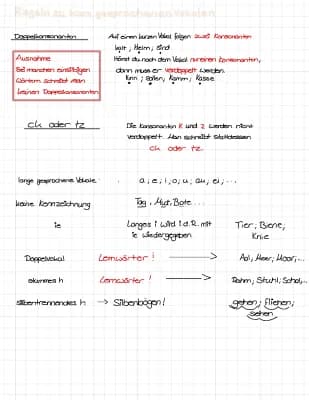 Regeln zu kurz gesprochenen Vokalen
Doppelkonsonanten
Auf einen kurzen Vokal folgen zwei Konsonanten
kalt, Helm, sind
Ausnahme
Bei manchen einsilbigen
Wörtern schreibt man
keinen Doppelkonsonanten
Hörst du nach dem Vokal nur einen Konsonanten,
dann muss er verdoppelt werden.
Kinn, Ballen, Kamm, Kasse
ck oder tz
Die Konsonanten k und z werden nicht
verdoppelt. Man schreibt stattdessen
ck oder tz.
lange gesprochene Vokale
a, e, i, o, u, au, ei, ...
keine Kennzeichnung
Tag, Hut, Bote...
ie
Langes i wird i.d.R. mit
ie wiedergegeben
Tier, Biene,
Knie
Doppelvokal
Lernwörter!
Aal, Meer, Moor, ...
stummes h
Lernwörter!
Rahm, Stuhl, Schal, ...
silbentrennendes h → Silbenbögen!
gehen, fliehen,
sehen